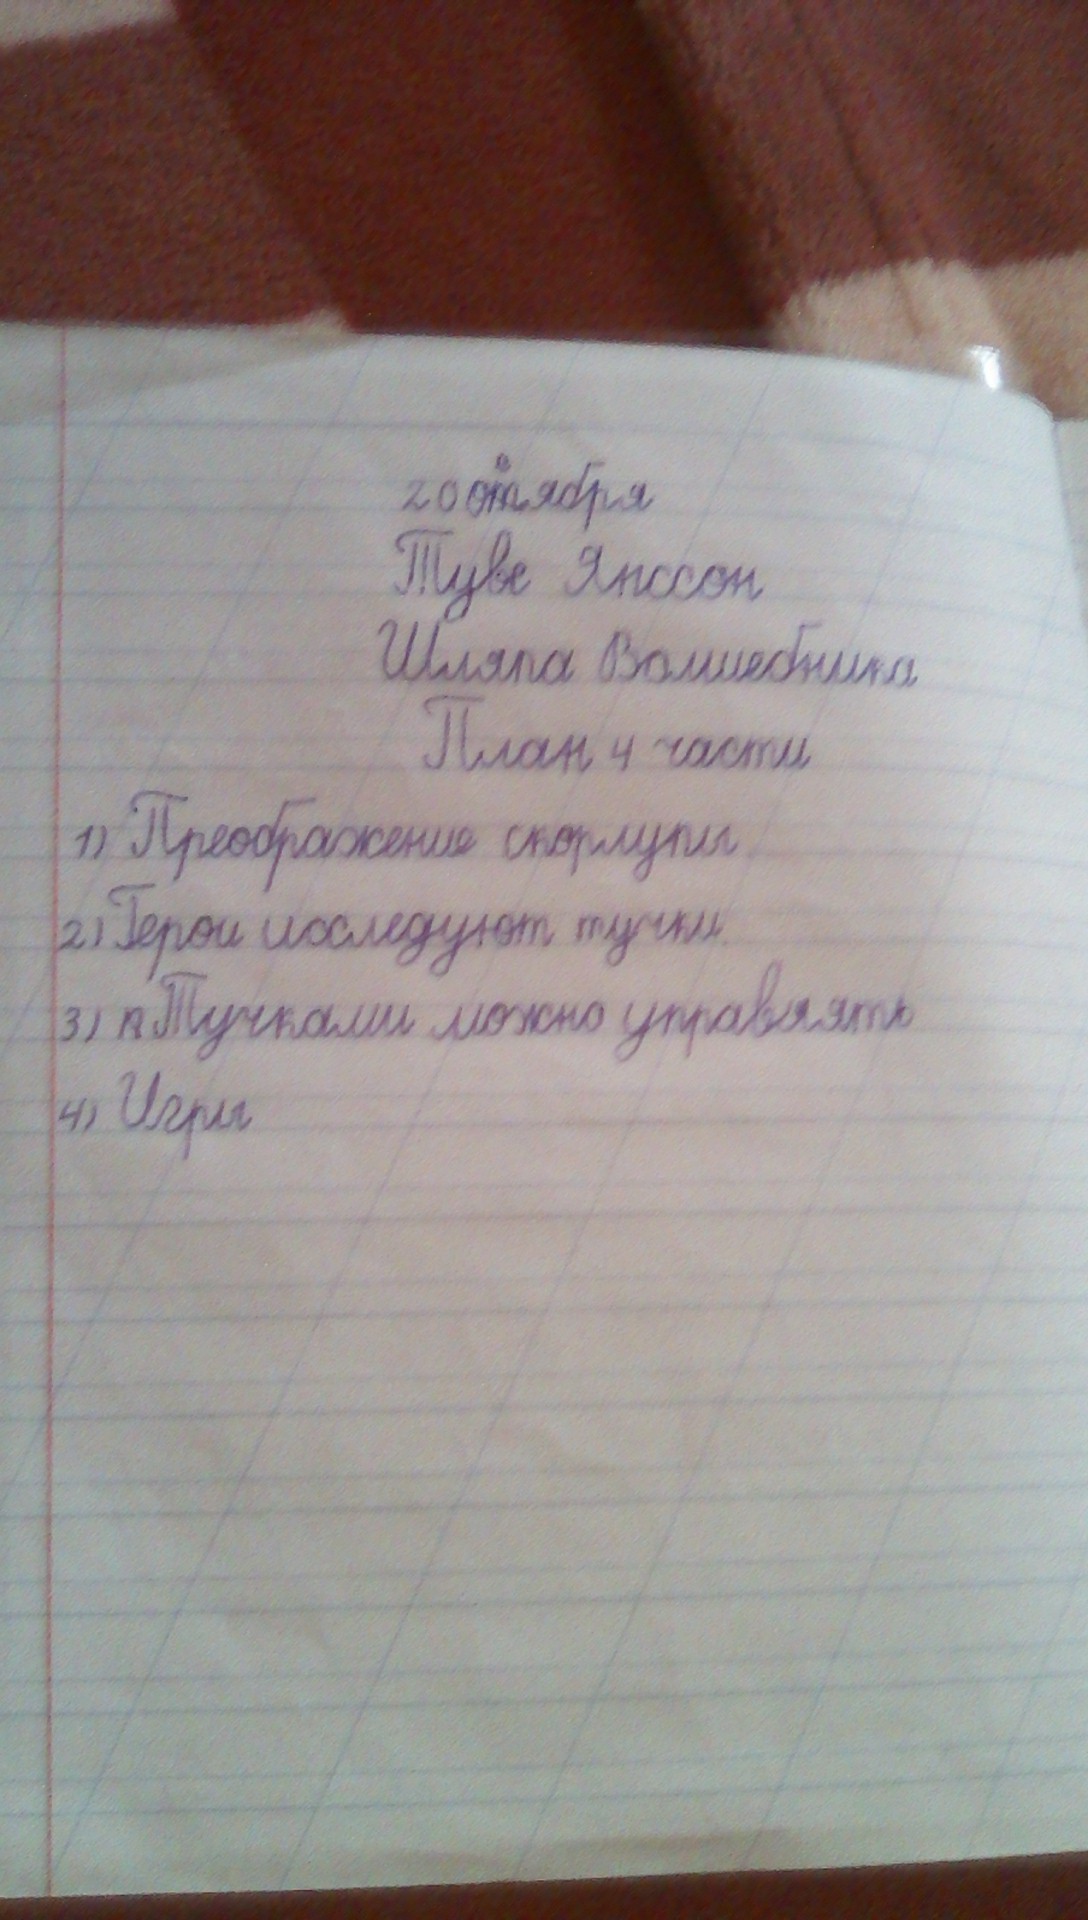 20 октября
Туве Янссон
Шляпа Волшебника
План 4 части
1) Преображение скорлупы.
2) Герои исследуют тучки.
3) Тучками можно управлять
4) Игры